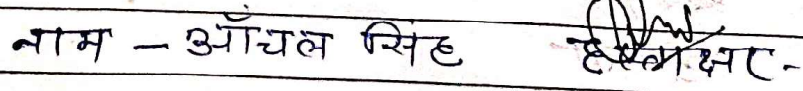 नाम - आँचल सिंह हस्ताक्षर -